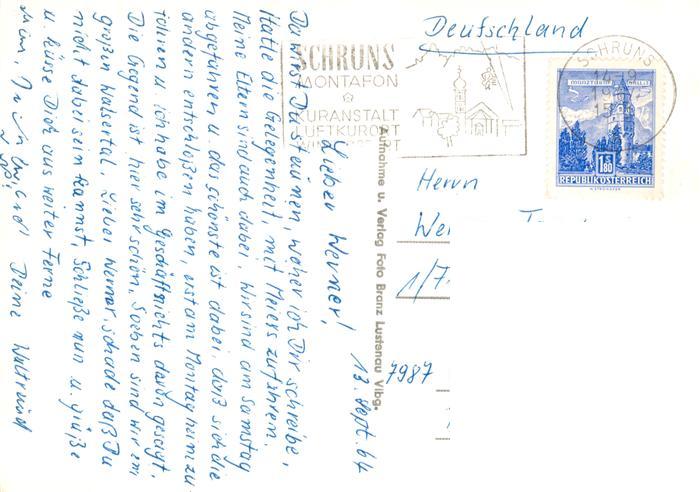 Deutschland
SCHRUNS
MONTAFON
KURANSTALT
LUFTKURORT
SCHRUNS
MÜNZTURM HALL i.T.
1.80
REPUBLIK ÖSTERREICH
Herrn
1/7
7987
Aufnahme u. Verlag Foto Branz Lustenau Vlbg.
13. Sept. 64
Lieber Werner!
Da wirst Du staunen, woher ich Dir schreibe,
Hatte die Gelegenheit, mit Meiers zu fahren.
Meine Eltern sind auch dabei. Wir sind am Samstag
abgefahren u. das schönste ist dabei, daß sich die
andern entschloßen haben, erst am Montag heimzu
fahren u. ich habe im Geschäft nichts davon gesagt.
Die Gegend ist hier sehr schön. Soeben sind wir im
großen Walsertal. Lieber Werner, schade daß Du
nicht dabei sein kannst. Schließe nun u. grüße
u. küsse Dich aus weiter Ferne
Deine Waltraud